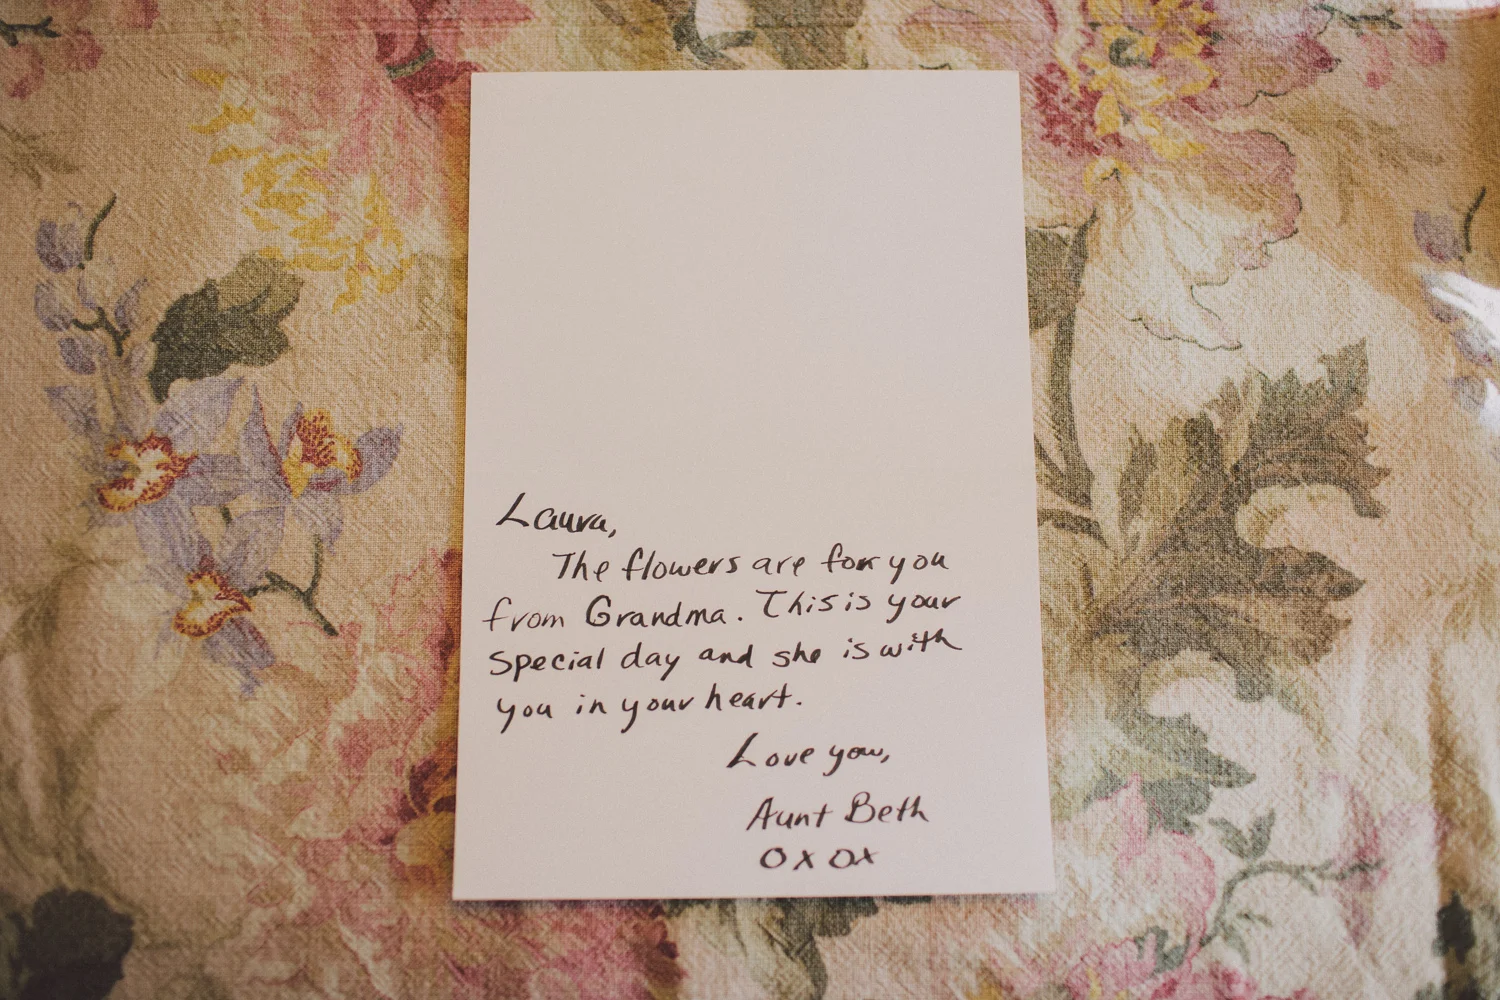 Laura,
The flowers are for you
from Grandma. This is your
special day and she is with
you in your heart.
Love you,
Aunt Beth
OXOX